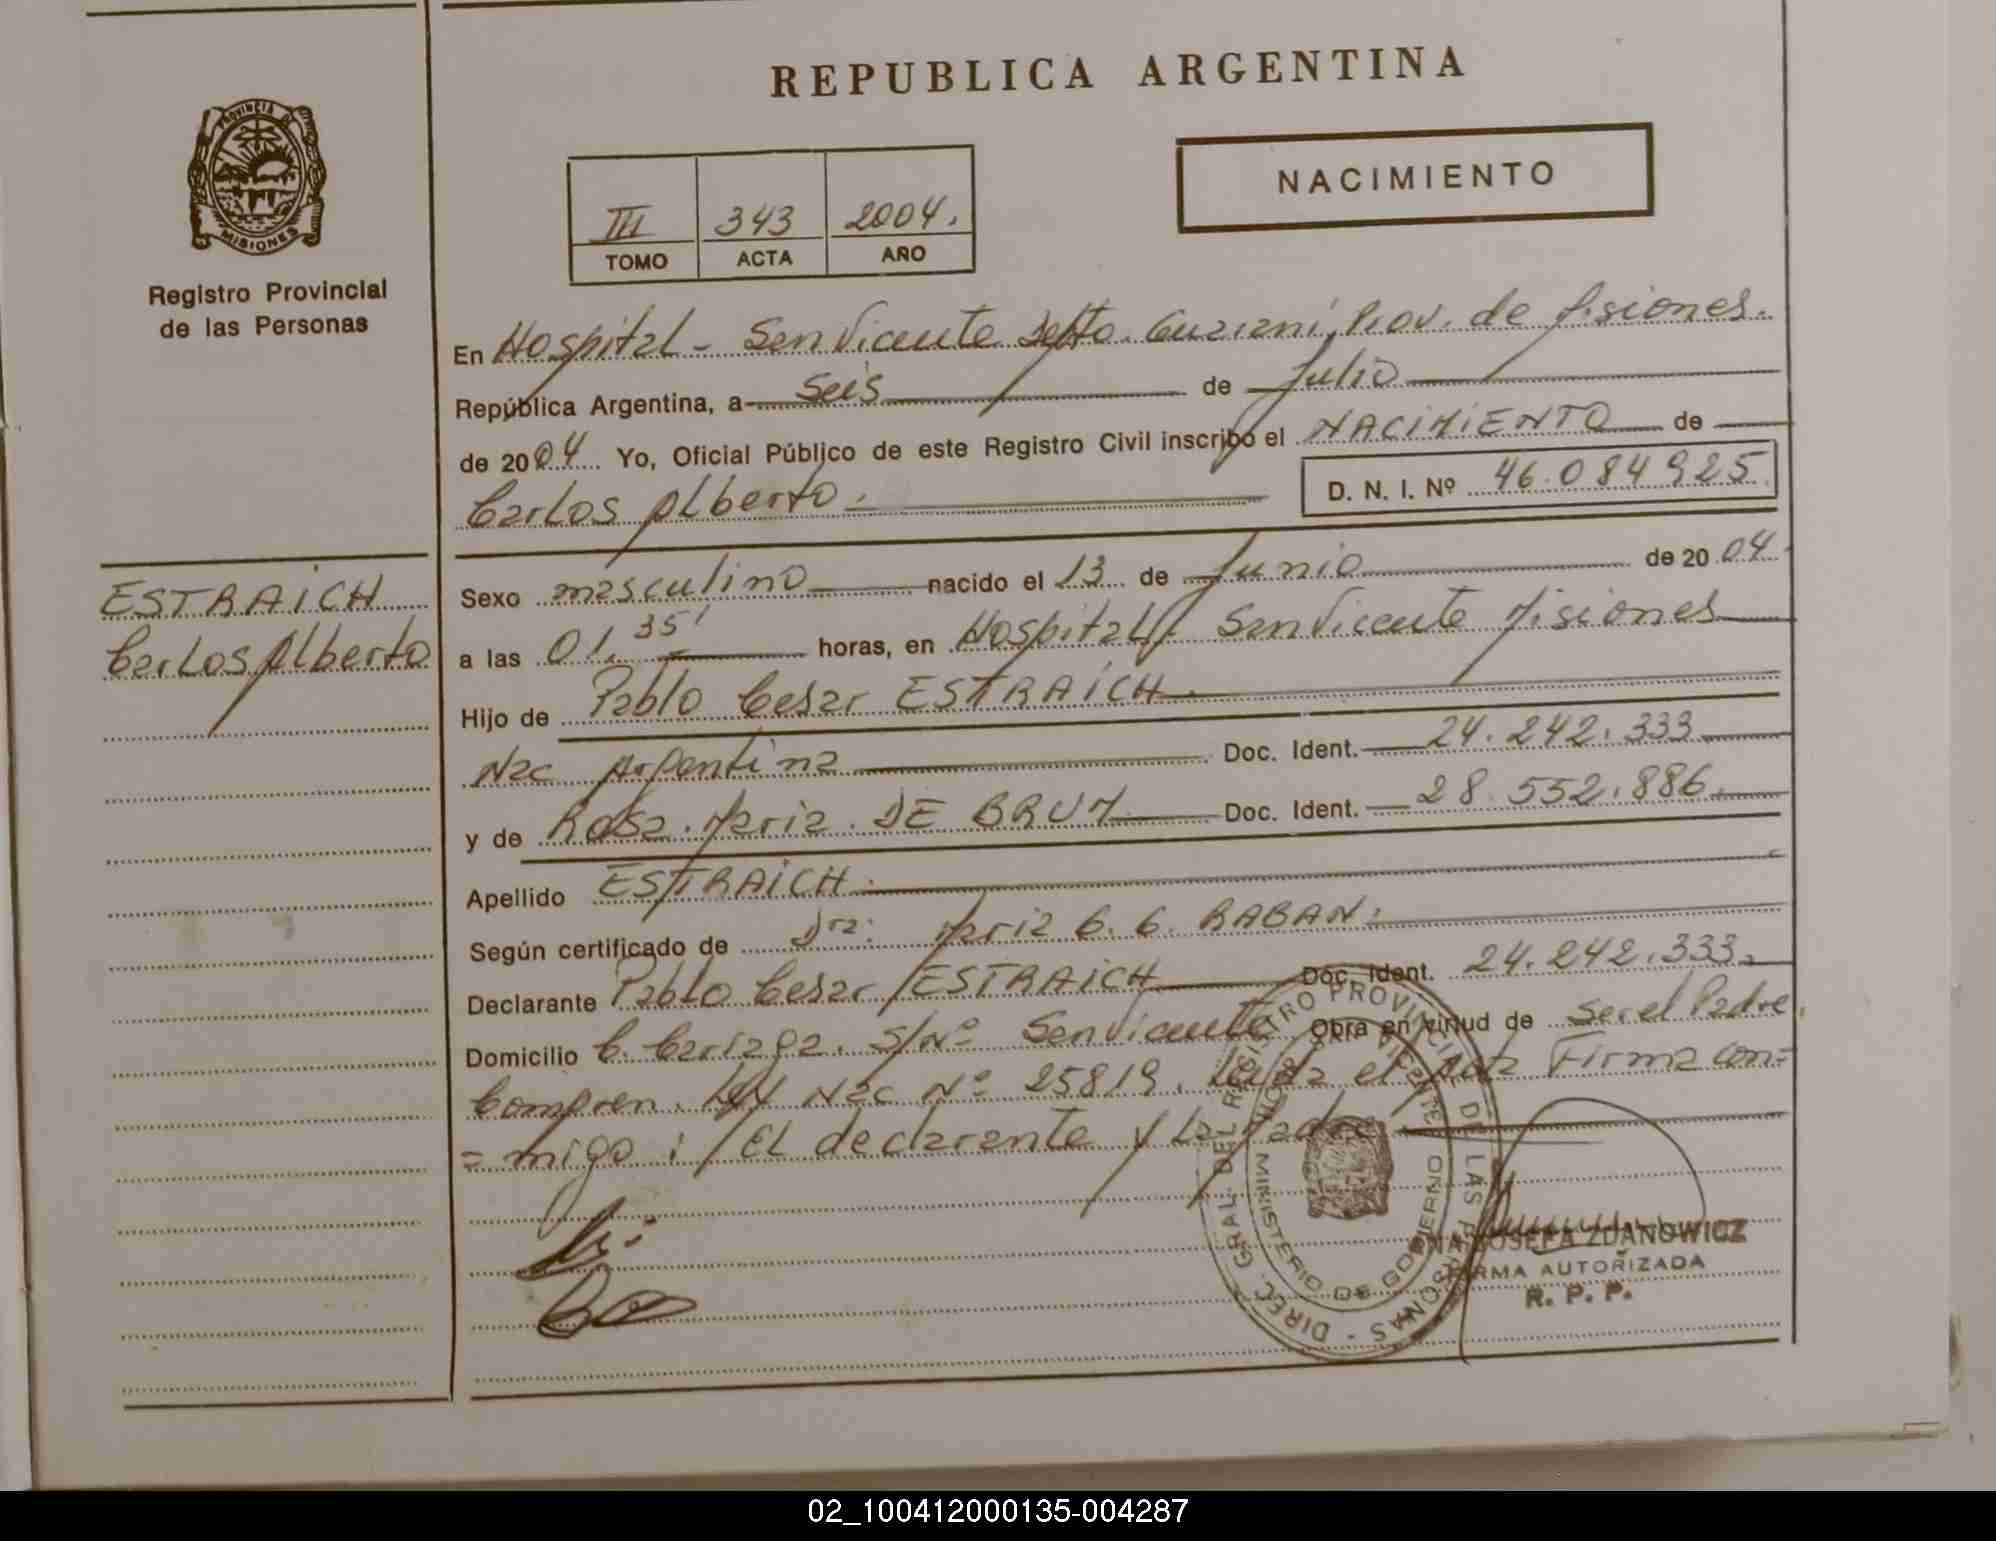 REPUBLICA ARGENTINA
PROVINCIA DE
MISIONES
Registro Provincial
de las Personas
III 343 2004.
TOMO ACTA AÑO
NACIMIENTO
En Hospital - San Vicente Depto. Guaraní, Prov. de Misiones.
República Argentina, a Seis de Julio
de 2004 Yo, Oficial Público de este Registro Civil inscribo el NACIMIENTO de
Carlos Alberto.
D. N. I. Nº 46.084925
ESTRAICH
Carlos Alberto
Sexo masculino nacido el 13 de Junio de 2004
a las 01,35' horas, en Hospital San Vicente Misiones
Hijo de Pablo Cesar ESTRAICH
Nac Argentina Doc. Ident. 24.242.333
y de Rosa Maria DE BRUM Doc. Ident. 28.552.886.
Apellido ESTRAICH.
Según certificado de Dra: Maria C. G. RABAN.
Declarante Pablo Cesar ESTRAICH Doc. Ident. 24.242.333
Domicilio C. Cariaga. S/Nº San Vicente Obra en virtud de ser el Padre.
Compren. Ley Nac Nº 25819. Leída el Acta Firma con=
=migo: El declarante y La Madre
DIREC. GRAL. DEL REGISTRO PROVINCIAL DE LAS PERSONAS -
MINISTERIO DE GOBIERNO
VICENTE
JOSEFA ZDANOWICZ
FIRMA AUTORIZADA
R. P. P.
02_100412000135-004287